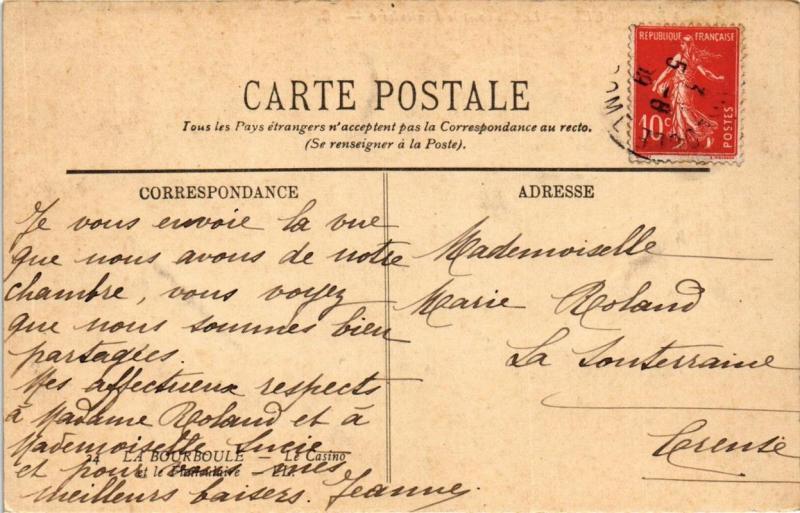 CARTE POSTALE
Tous les Pays étrangers n'acceptent pas la Correspondance au recto.
(Se renseigner à la Poste).
RÉPUBLIQUE FRANÇAISE
10c
POSTES
CORRESPONDANCE
Je vous envoie la vue
que nous avons de notre
chambre, vous voyez
que nous sommes bien
partagées.
Mes affectueux respects
à Madame Roland et à
Mademoiselle Lucie
et pour vous mes
meilleurs baisers. Jeanne
24 LA BOURBOULE — Le Casino
et le
ADRESSE
Mademoiselle
Marie Roland
La Souterraine
Creuse